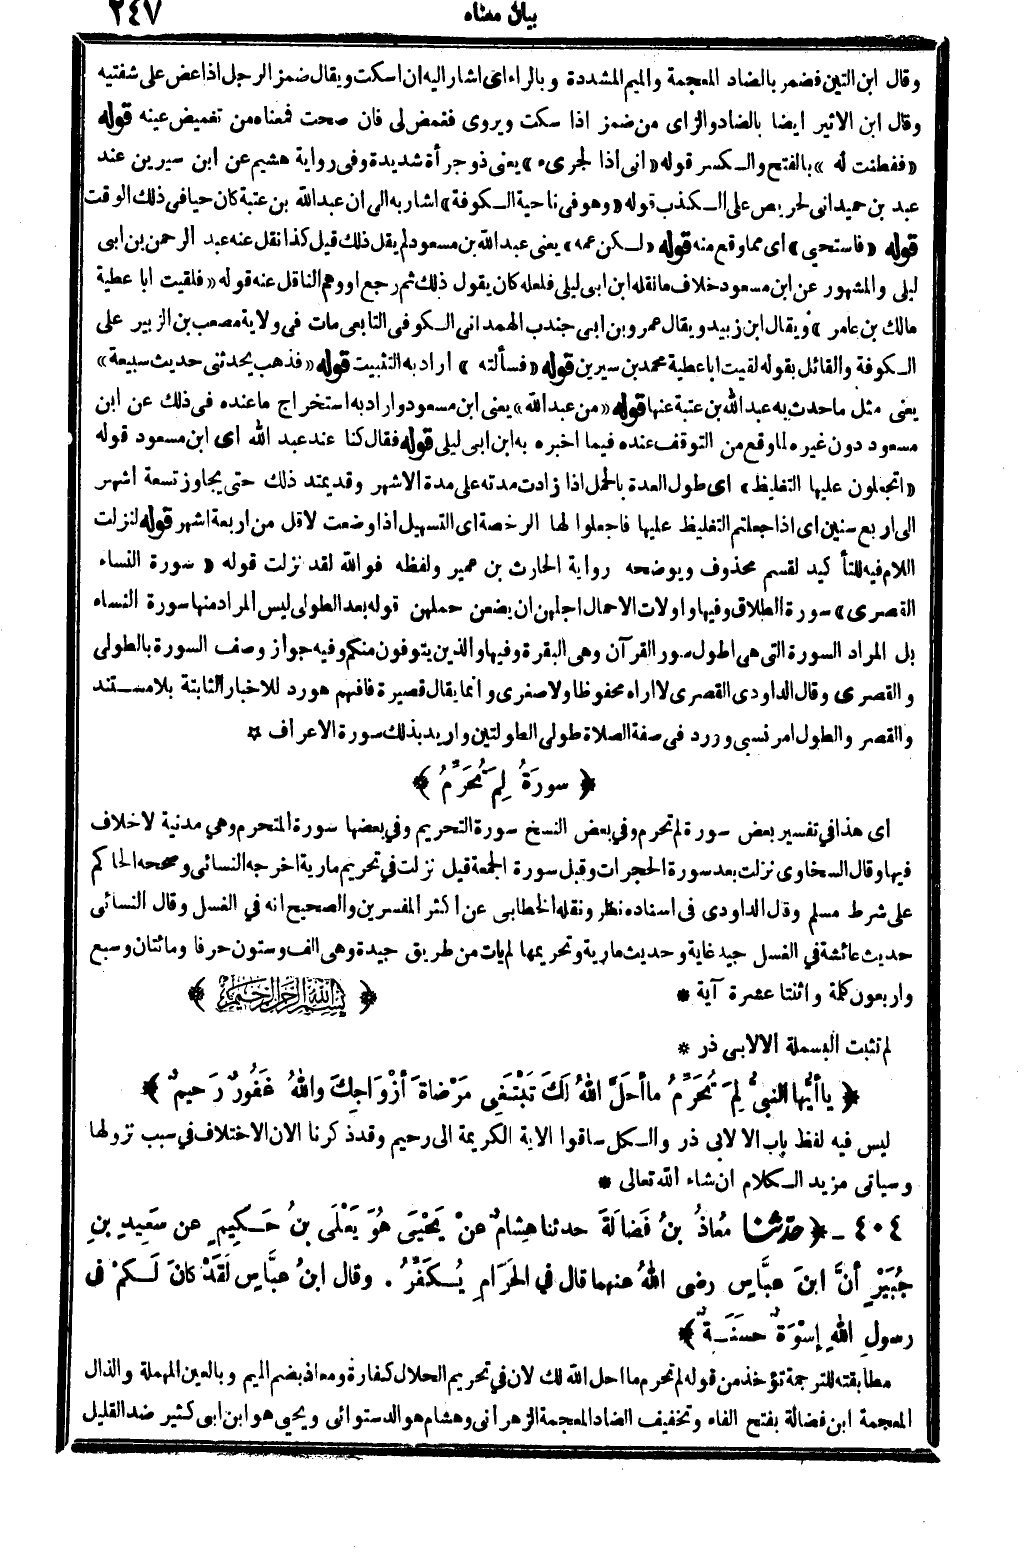 بيان معناه
٢٤٧
وقال ابن التين فضمر بالضاد المعجمة والميم المشددة وبالراء اى اشار اليه ان اسكت ويقال ضمز الرجل اذا عض على شفتيه
وقال ابن الاثير ايضا بالضاد والزاى من ضمز اذا سكت ويروى فغمض لى فان صحت فمعناه من تغميض عينه قوله
«ففطنت له» بالفتح والكسر قوله «انى اذا لجرىء» يعنى ذو جرأة شديدة وفى رواية هشيم عن ابن سيرين عند
عبد بن حميد انى لحريص على الكذب قوله «وهو فى ناحية الكوفة» اشار به الى ان عبدالله بن عتبة كان حيا فى ذلك الوقت
قوله «فاستحيى» اى مما وقع منه قوله «لكن عمه» يعنى عبدالله بن مسعود لم يقل ذلك قيل كذا نقل عنه عبد الرحمن بن ابى
ليلى والمشهور عن ابن مسعود خلاف ما نقله ابن ابى ليلى فلعله كان يقول ذلك ثم رجع او وهم الناقل عنه قوله «فلقيت ابا عطية
مالك بن عامر» ويقال ابن زبيد ويقال عمرو بن ابى جندب الهمدانى الكوفى التابعى مات فى ولاية مصعب بن الزبير على
الكوفة والقائل بقوله لقيت ابا عطية محمد بن سيرين قوله «فسألته» اراد به التثبيت قوله «فذهب يحدثنى حديث سبيعة»
يعنى مثل ما حدث به عبدالله بن عتبة عنها قوله «من عبدالله» يعنى ابن مسعود واراد به استخراج ما عنده فى ذلك عن ابن
مسعود دون غيره لما وقع من التوقف عنده فيما اخبره به ابن ابى ليلى قوله فقال كنا عند عبد الله اى ابن مسعود قوله
«اتجعلون عليها التغليظ» اى طول العدة بالحمل اذا زادت مدته على مدة الاشهر وقد يمتد ذلك حتى يجاوز تسعة اشهر
الى اربع سنين اى اذا جعلتم التغليظ عليها فاجعلوا لها الرخصة اى التسهيل اذا وضعت لاقل من اربعة اشهر قوله لنزلت
اللام فيه للتأكيد لقسم محذوف ويوضحه رواية الحارث بن عمير ولفظه فوالله لقد نزلت قوله «سورة النساء
القصرى» سورة الطلاق وفيها واولات الاحمال اجلهن ان يضعن حملهن قوله بعد الطولى ليس المراد منها سورة النساء
بل المراد السورة التى هى اطول سور القرآن وهى البقرة وفيها والذين يتوفون منكم وفيه جواز وصف السورة بالطولى
والقصرى وقال الداودى القصرى لا اراه محفوظا ولا صغرى وانما يقال قصيرة فافهم هو رد للاخبار الثابتة بلا مستند
والقصر والطول امر نسبى وورد فى صفة الصلاة طولى الطولتين واريد بذلك سورة الاعراف *
﴿ سورَةُ لِمَ تُحَرِّمُ ﴾
اى هذا في تفسير بعض سورة لم تحرم وفي بعض النسخ سورة التحريم وفي بعضها سورة المتحرم وهي مدنية لا خلاف
فيها وقال السخاوى نزلت بعد سورة الحجرات وقبل سورة الجمعة قيل نزلت في تحريم مارية اخرجه النسائى وصححه الحاكم
على شرط مسلم وقال الداودى فى اسناده نظر ونقله الخطابى عن اكثر المفسرين والصحيح انه في العسل وقال النسائى
حديث عائشة في العسل جيد غاية وحديث مارية وتحريمها لم يات من طريق جيدة وهى الف وستون حرفا ومائتان وسبع
واربعون كلمة واثنتا عشرة آية *
﴿ بسم الله الرحمن الرحيم ﴾
لم تثبت البسملة الا لابى ذر *
﴿ ياأَيُّها النبىُّ لِمَ تُحَرِّمُ ماأحَلَّ اللهُ لَكَ تَبْتَغِى مَرْضاةَ أزْوَاجِكَ واللهُ غَفُورٌ رَحيمٌ ﴾
ليس فيه لفظ باب الا لابى ذر والكل ساقوا الاية الكريمة الى رحيم وقد ذكرنا الان الاختلاف في سبب نزولها
وسياتى مزيد الكلام ان شاء الله تعالى *
٤٠٤ - ﴿حدثنا مُعاذُ بنُ فَضالَةَ حدثنا هِشامٌ عنْ يَحْيَى هُوَ يَعْلَى بنُ حَكِيمٍ عن سَعِيدِ بنِ
جُبَيْرٍ أنَّ ابنَ عبَّاسٍ رضى اللهُ عنهما قال في الحَرَامِ يُكَفِّرُ . وقال ابنُ عبَّاسٍ لَقَدْ كانَ لَكمْ فى
رسولِ اللهِ إسْوَةٌ حسَنَةٌ﴾
مطابقته للترجمة تؤخذ من قوله لم تحرم ما احل الله لك لان في تحريم الحلال كفارة ومعاذ بضم الميم وبالعين المهملة والذال
المعجمة ابن فضالة بفتح الفاء وتخفيف الضاد المعجمة الزهرانى وهشام هو الدستوائى ويحيى هو ابن ابى كثير ضد القليل